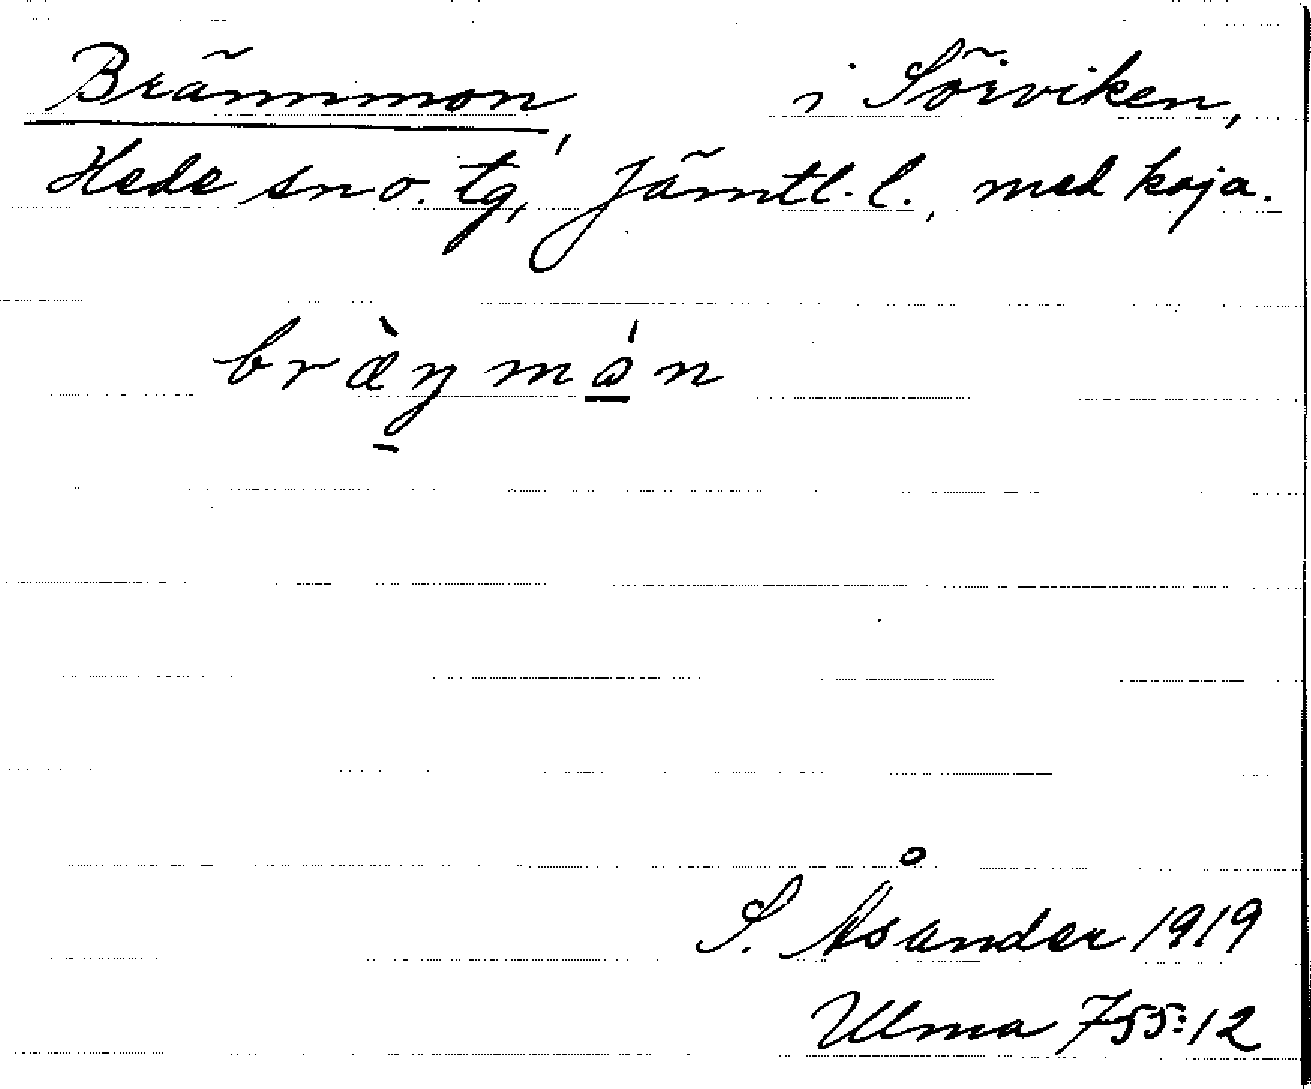 Brännmon, i Sörviken,
Hede sn o. tg, Jämtl. l., med koja.
bræ̀ŋmón
S. Åsander 1919
Ulma 755:12